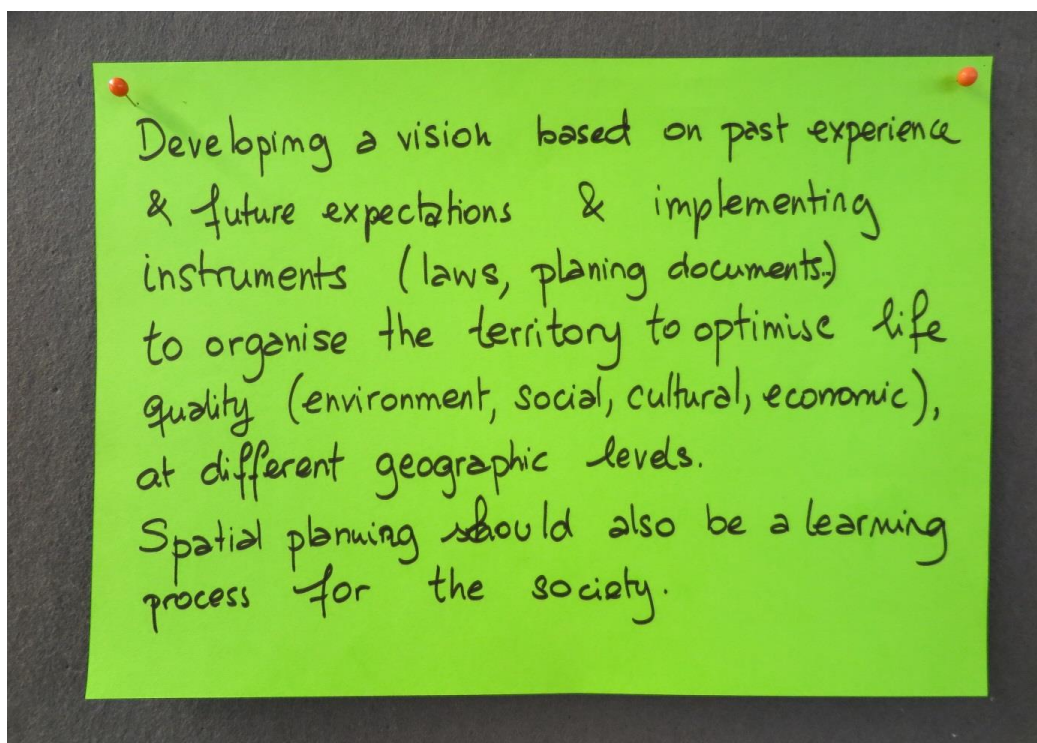 Developing a vision based on past experience
& future expectations & implementing
instruments (laws, planing documents..)
to organise the territory to optimise life
quality (environment, social, cultural, economic),
at different geographic levels.
Spatial planning should also be a learning
process for the society.